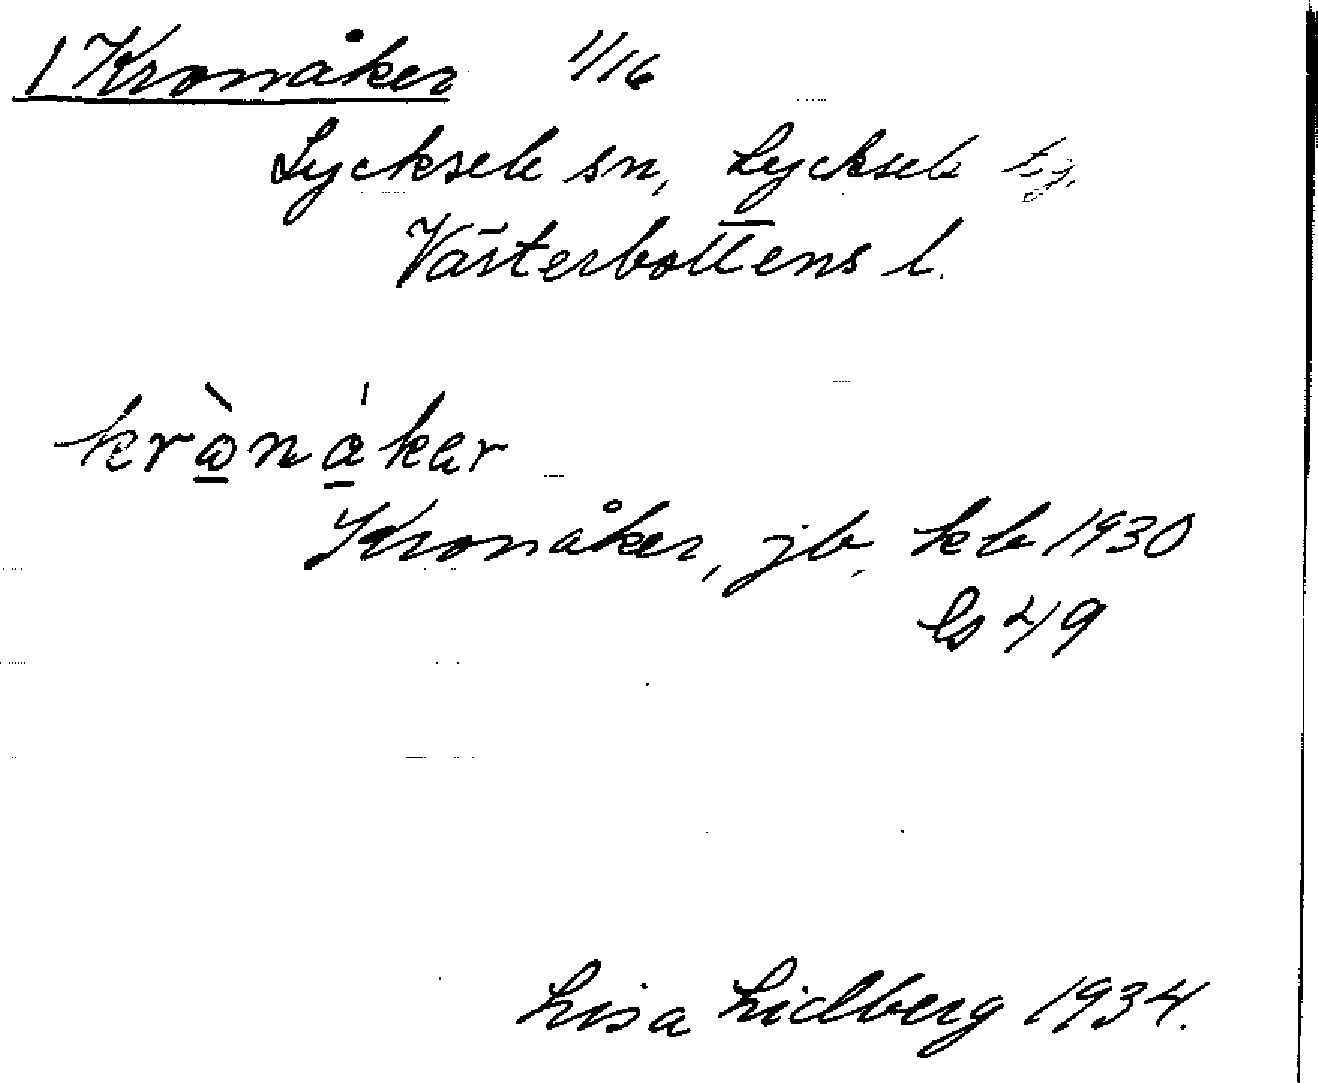 1 Kronåker 1/16
Lycksele sn, Lycksele tg.
Västerbottens l.
krònákar
Kronåker, jb, kb 1930
Bs 49
Lisa Lidberg 1934.